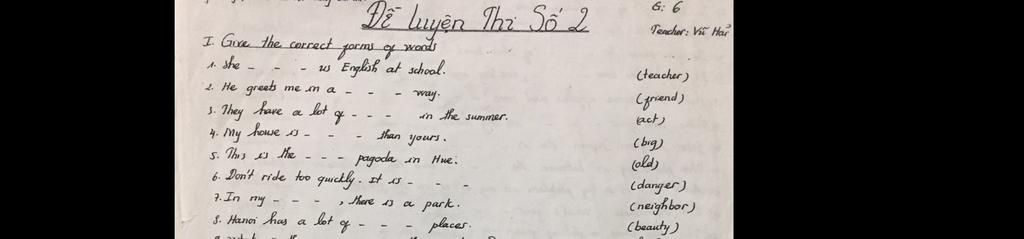 Đề Luyện Thi Số 2
G: 6
Teacher: Vũ Hải
I. Give the correct forms of words
1. She - - - us English at school. (teacher)
2. He greets me in a - - - way. (friend)
3. They have a lot of - - - in the summer. (act)
4. My house is - - - than yours. (big)
5. This is the - - - pagoda in Hue. (old)
6. Don't ride too quickly. It is - - - (danger)
7. In my - - - , there is a park. (neighbor)
8. Hanoi has a lot of - - - places. (beauty)